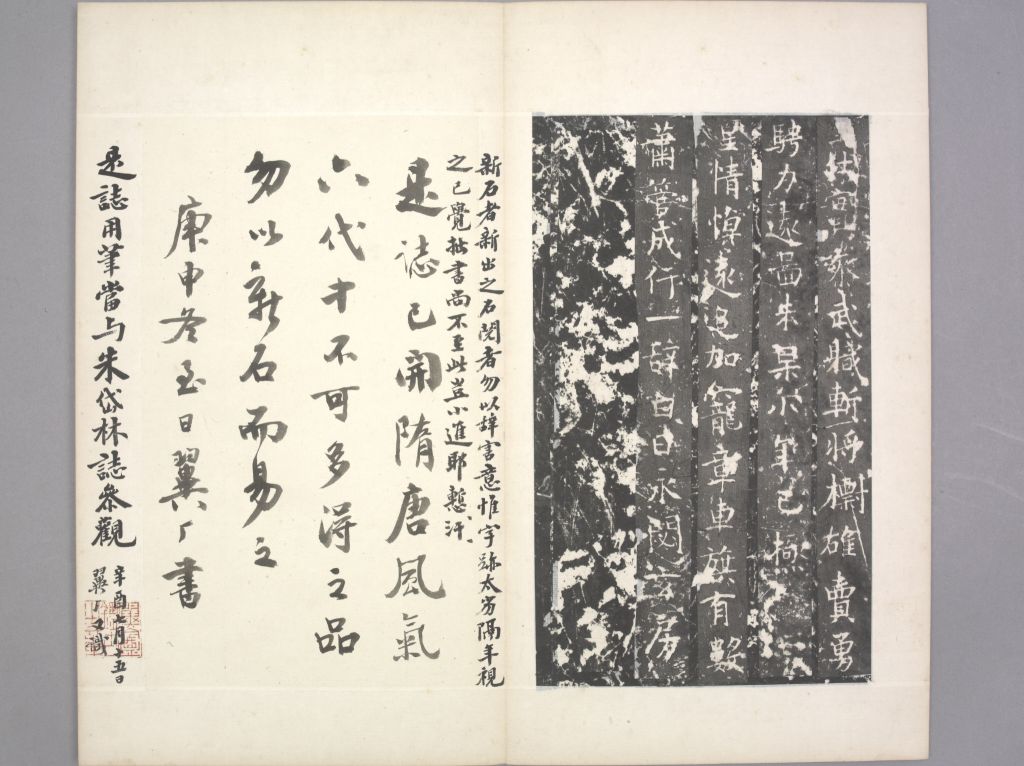 武職斬將雄賣勇
騁力遠邁朱
情惇遠追加寵章車旗有數
蕭管成行一辭白日永閟玄房
新石者新出之石閱者勿以辭害意惟字跡太劣隔年視
之已覺拙書尚不至此豈小進耶慙汗
是誌已開隋唐風氣
六代中不可多得之品
勿以新石而易之
庚申冬至日翼厂書
是誌用筆當与朱岱林誌參觀
辛酉七月十五日
翼厂又識